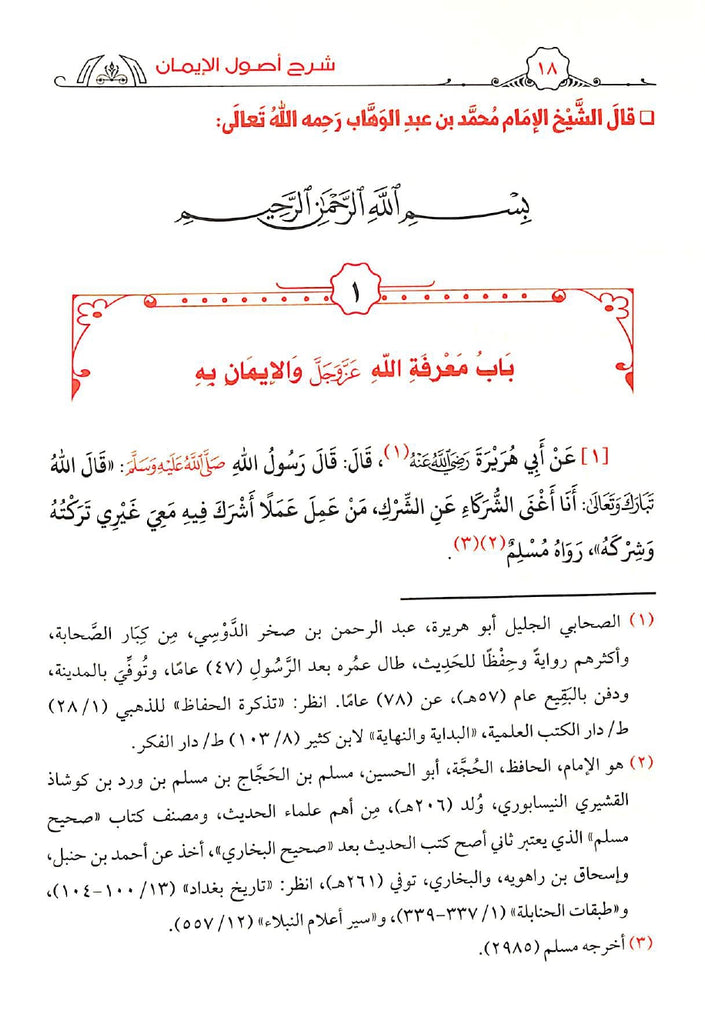 ١٨
شرح أصول الإيمان
❑ قالَ الشَّيْخ الإمَام مُحمَّد بن عبدِ الوَهَّاب رَحِمه اللهُ تَعالَى:
بِسْمِ اللَّهِ الرَّحْمَٰنِ الرَّحِيمِ
١
بَابُ مَعْرِفَةِ اللَّهِ عَزَّوَجَلَّ وَالإيمَانِ بِهِ
[١] عَنْ أَبِي هُرَيْرَةَ رَضِيَ اللَّهُ عَنْهُ(١)، قَالَ: قَالَ رَسُولُ اللهِ صَلَّى اللَّهُ عَلَيْهِ وَسَلَّمَ: «قَالَ اللهُ
تَبَارَكَ وَتَعَالَى: أَنَا أَغْنَى الشُّرَكَاءِ عَنِ الشِّرْكِ، مَنْ عَمِلَ عَمَلًا أَشْرَكَ فِيهِ مَعِيَ غَيْرِي تَرَكْتُهُ
وَشِرْكَهُ»، رَوَاهُ مُسْلِمٌ(٢)(٣).
(١) الصحابي الجليل أبو هريرة، عبد الرحمن بن صخر الدَّوْسِي، مِن كِبَار الصَّحابة،
وأكثرهم روايةً وحِفْظًا للحَدِيث، طال عمُره بعد الرَّسُولِ (٤٧) عامًا، وتُوفِّيَ بالمدينة،
ودفن بالبَقِيع عام (٥٧هـ)، عن (٧٨) عامًا. انظر: «تذكرة الحفاظ» للذهبي (١/ ٢٨)
ط/ دار الكتب العلمية، «البداية والنهاية» لابن كثير (٨/ ١٠٣) ط/ دار الفكر.
(٢) هو الإمام، الحافظ، الحُجَّة، أبو الحسين، مسلم بن الحَجَّاج بن مسلم بن ورد بن كوشاذ
القشيري النيسابوري، وُلد (٢٠٦هـ)، مِن أهم علماء الحديث، ومصنف كتاب «صحيح
مسلم» الذي يعتبر ثاني أصح كتب الحديث بعد «صحيح البخاري»، أخذ عن أحمد بن حنبل،
وإسحاق بن راهويه، والبخاري، توفي (٢٦١هـ)، انظر: «تاريخ بغداد» (١٣/ ١٠٠-١٠٤)،
و«طبقات الحنابلة» (١/ ٣٣٧-٣٣٩)، و«سير أعلام النبلاء» (١٢/ ٥٥٧).
(٣) أخرجه مسلم (٢٩٨٥).